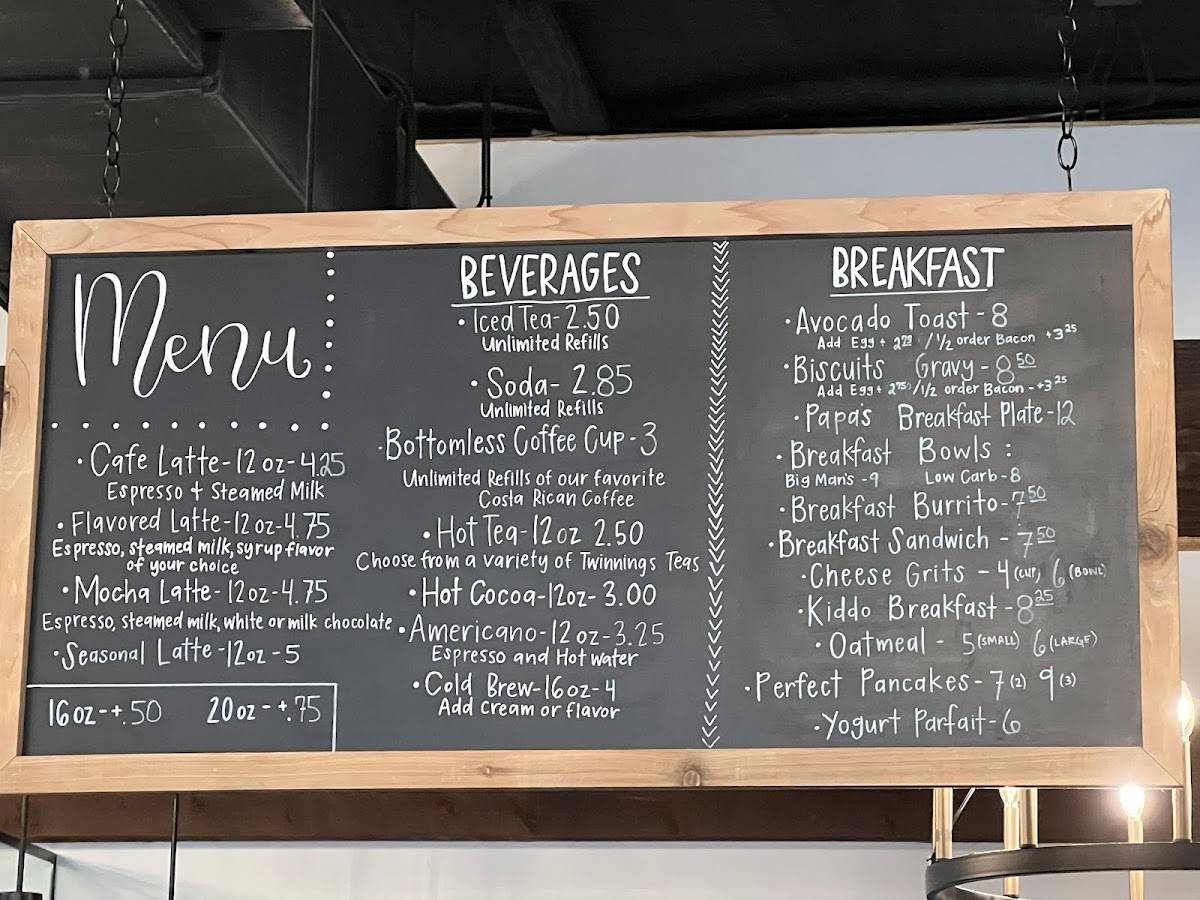 Menu
• Cafe Latte-12 oz-4.25
Espresso + Steamed Milk
• Flavored Latte-12 oz-4.75
Espresso, steamed milk, syrup flavor
of your choice
• Mocha Latte-12oz-4.75
Espresso, steamed milk, white or milk chocolate
• Seasonal Latte-12oz-5
16 oz-+.50 20 oz-+.75
BEVERAGES
• Iced Tea-2.50
Unlimited Refills
• Soda-2.85
Unlimited Refills
• Bottomless Coffee Cup-3
Unlimited Refills of our favorite
Costa Rican Coffee
• Hot Tea-12oz 2.50
Choose from a variety of Twinnings Teas
• Hot Cocoa-12oz-3.00
• Americano-12 oz-3.25
Espresso and Hot water
• Cold Brew-16oz-4
Add cream or flavor
BREAKFAST
• Avocado Toast-8
Add Egg + / 1/2 order Bacon +3 25
• Biscuits Gravy-8 50
Add Egg + 2 75 / 1/2 order Bacon-+3 25
• Papa's Breakfast Plate-12
• Breakfast Bowls:
Big Man's-9 Low Carb-8
• Breakfast Burrito-7 50
• Breakfast Sandwich-7 50
• Cheese Grits-4 (CUP) 6 (BOWL)
• Kiddo Breakfast-8 25
• Oatmeal-5 (SMALL) 6 (LARGE)
• Perfect Pancakes-7 (2) 9 (3)
• Yogurt Parfait-6